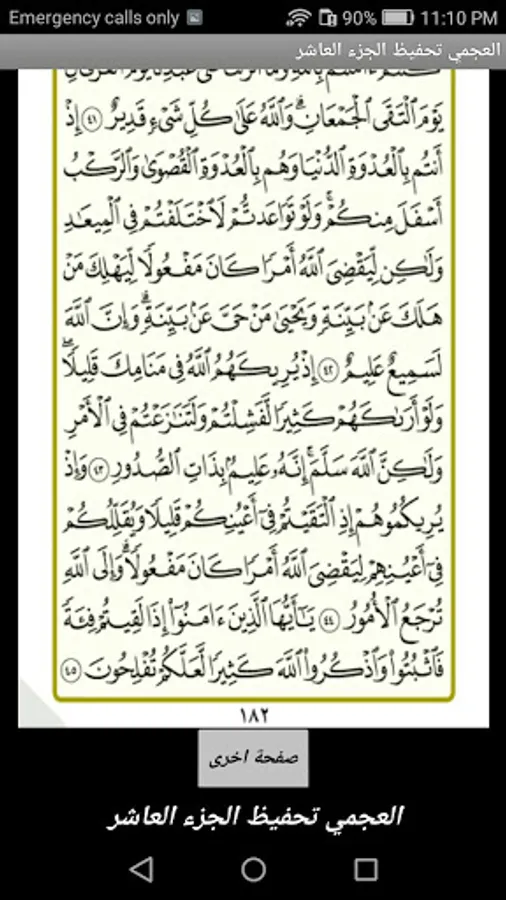 Emergency calls only 90% 11:10 PM
العجمي تحفيظ الجزء العاشر
يَوْمَ ٱلْتَقَى ٱلْجَمْعَانِۗ وَٱللَّهُ عَلَىٰ كُلِّ شَىْءٍ قَدِيرٌ ٤١ إِذْ
أَنتُم بِٱلْعُدْوَةِ ٱلدُّنْيَا وَهُم بِٱلْعُدْوَةِ ٱلْقُصْوَىٰ وَٱلرَّكْبُ
أَسْفَلَ مِنكُمْۚ وَلَوْ تَوَاعَدتُّمْ لَٱخْتَلَفْتُمْ فِى ٱلْمِيعَـٰدِ
وَلَـٰكِن لِّيَقْضِىَ ٱللَّهُ أَمْرًا كَانَ مَفْعُولًا لِّيَهْلِكَ مَنْ
هَلَكَ عَنۢ بَيِّنَةٍ وَيَحْيَىٰ مَنْ حَىَّ عَنۢ بَيِّنَةٍۗ وَإِنَّ ٱللَّهَ
لَسَمِيعٌ عَلِيمٌ ٤٢ إِذْ يُرِيكَهُمُ ٱللَّهُ فِى مَنَامِكَ قَلِيلًاۖ
وَلَوْ أَرَىٰكَهُمْ كَثِيرًا لَّفَشِلْتُمْ وَلَتَنَـٰزَعْتُمْ فِى ٱلْأَمْرِ
وَلَـٰكِنَّ ٱللَّهَ سَلَّمَۗ إِنَّهُۥ عَلِيمٌۢ بِذَاتِ ٱلصُّدُورِ ٤٣ وَإِذْ
يُرِيكُمُوهُمْ إِذِ ٱلْتَقَيْتُمْ فِىٓ أَعْيُنِكُمْ قَلِيلًا وَيُقَلِّلُكُمْ
فِىٓ أَعْيُنِهِمْ لِيَقْضِىَ ٱللَّهُ أَمْرًا كَانَ مَفْعُولًاۗ وَإِلَى ٱللَّهِ
تُرْجَعُ ٱلْأُمُورُ ٤٤ يَـٰٓأَيُّهَا ٱلَّذِينَ ءَامَنُوٓا۟ إِذَا لَقِيتُمْ فِئَةً
فَٱثْبُتُوا۟ وَٱذْكُرُوا۟ ٱللَّهَ كَثِيرًا لَّعَلَّكُمْ تُفْلِحُونَ ٤٥
١٨٢
صفحة اخرى
العجمي تحفيظ الجزء العاشر